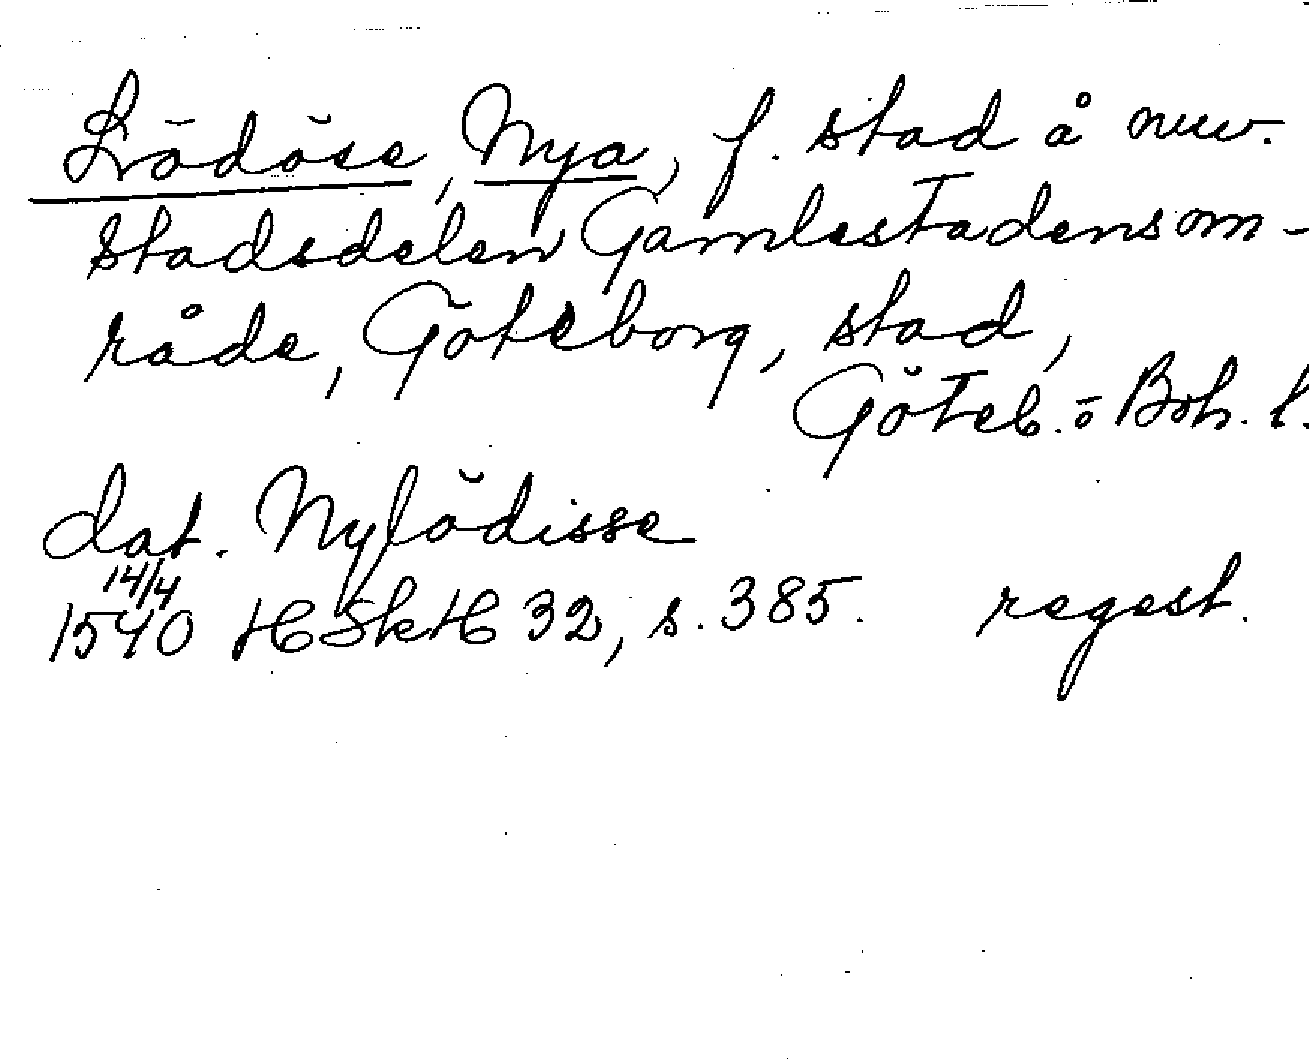 Lödöse, Nya, f. stad å nuv.
stadsdelen Gamlestadens om-
råde, Göteborg, stad,
Göteb. o Boh. l.
dat. Nylödisse
14/4
1540 HSkH 32, s. 385. regest.